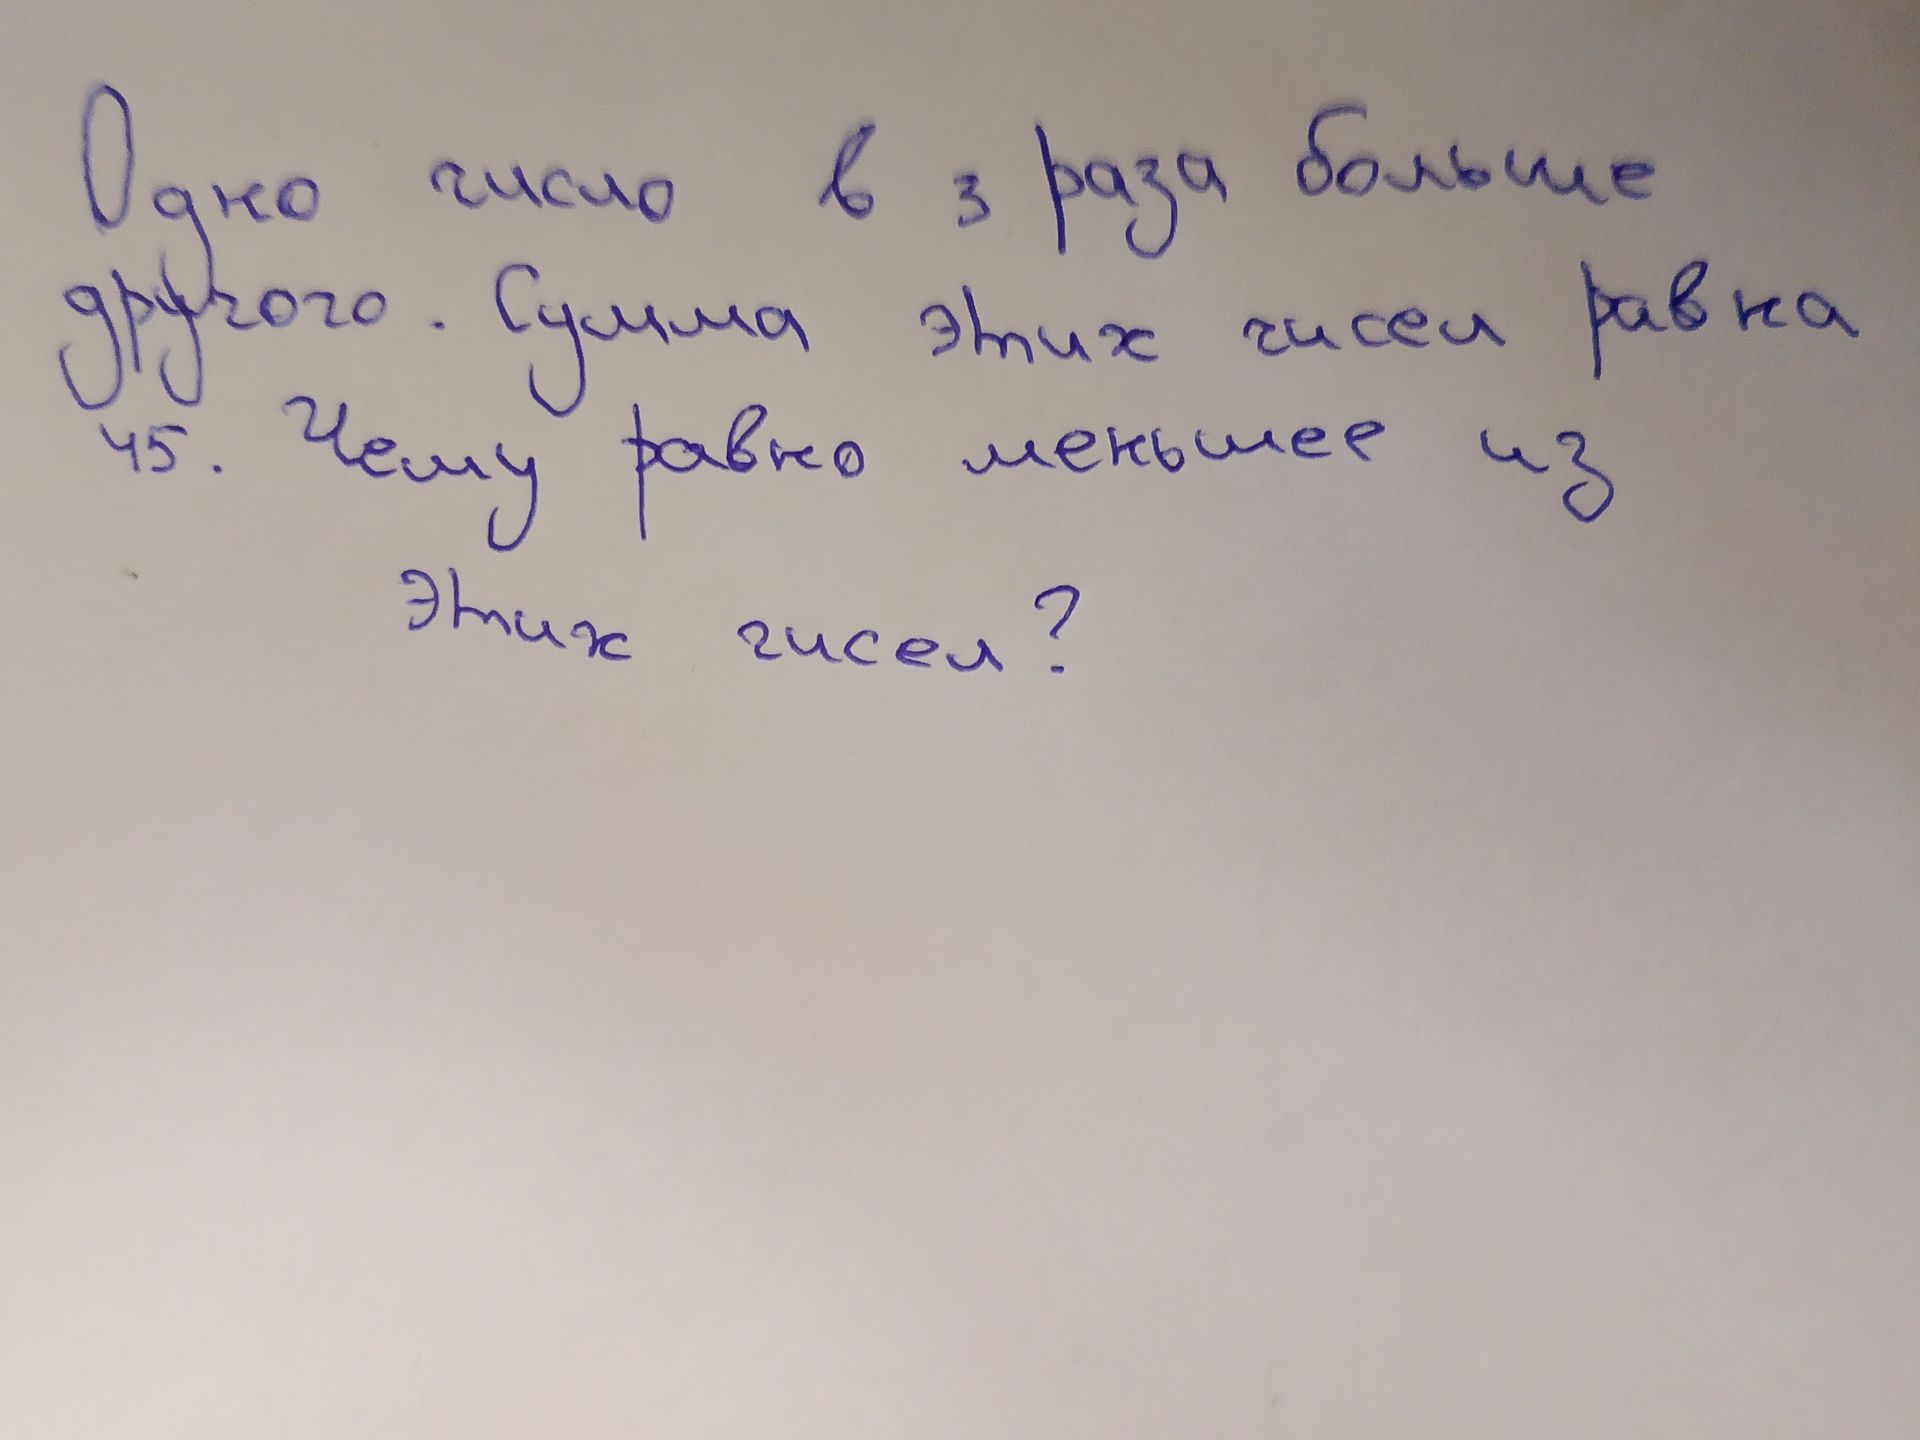 Одно число в 3 раза больше
другого. Сумма этих чисел равна
45. Чему равно меньшее из
этих чисел?